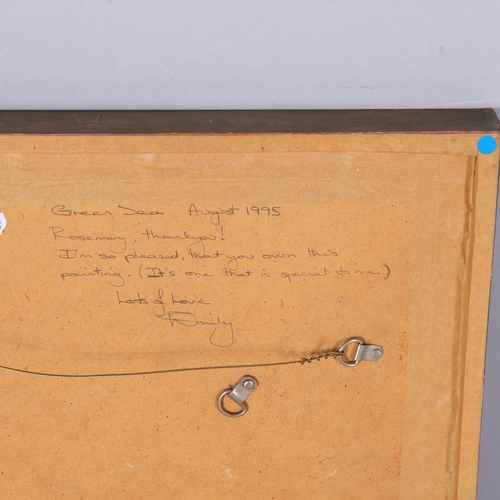 Green Sea August 1995
Rosemary, thankyou!
I'm so pleased, that you own this
painting. (It's one that is special to me)
Lots of Love
Emily